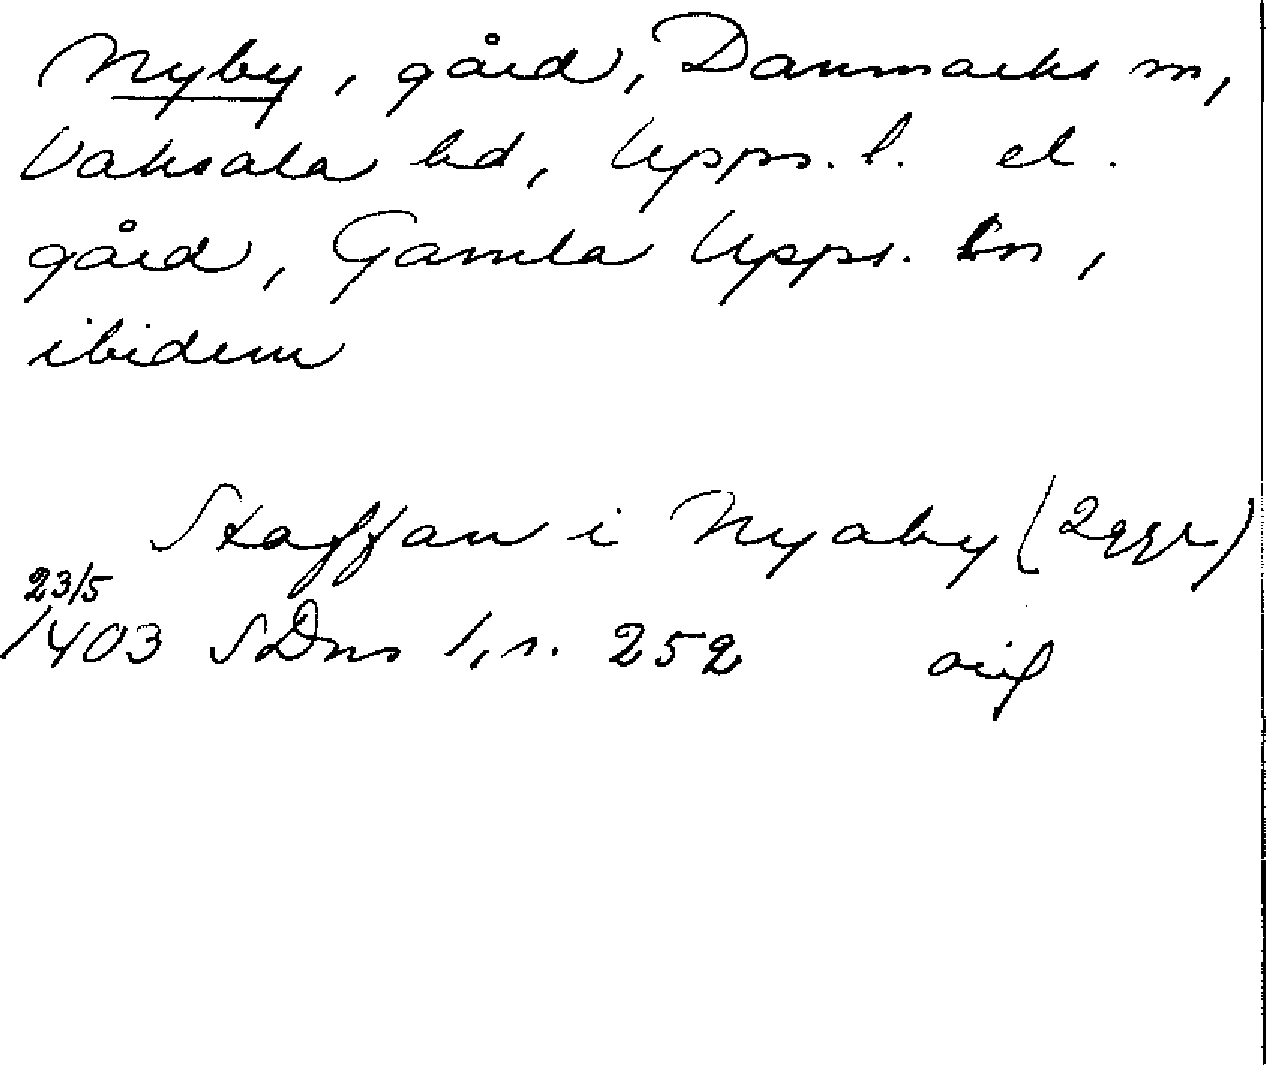 Nyby, gård, Danmarks sn,
Vaksala hd, Upps. l. el.
gård, Gamla Upps. sn,
ibidem
Staffan i Nyaby (2 ggr)
23/5
1403 SDns 1, s. 252 orig